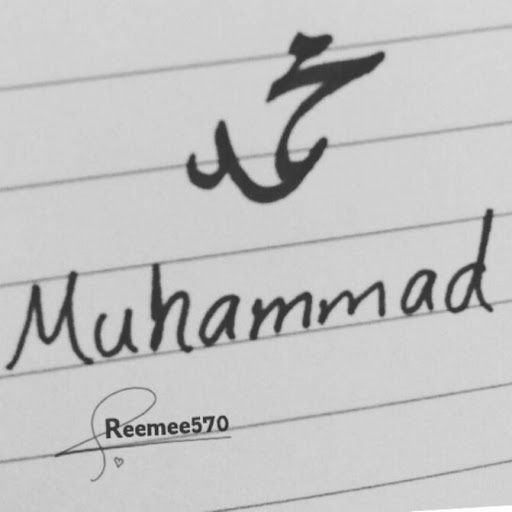 محمد
Muhammad
Reemee570